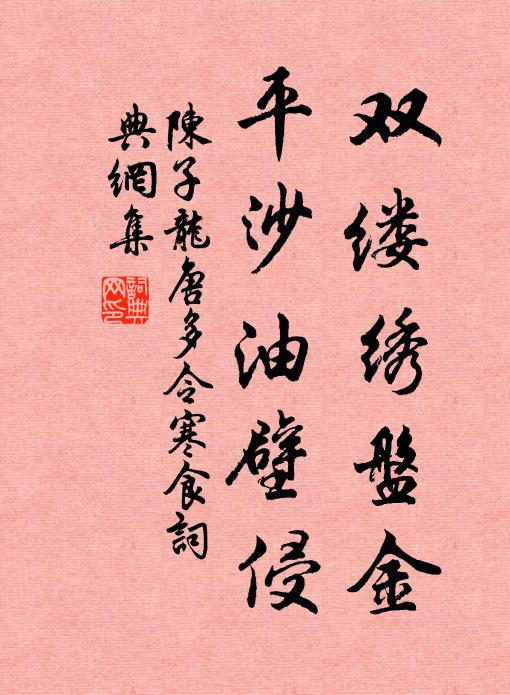 双缕绣盤金
平沙油壁侵
陳子龍唐多令寒食詞
典網集
詞典
网印